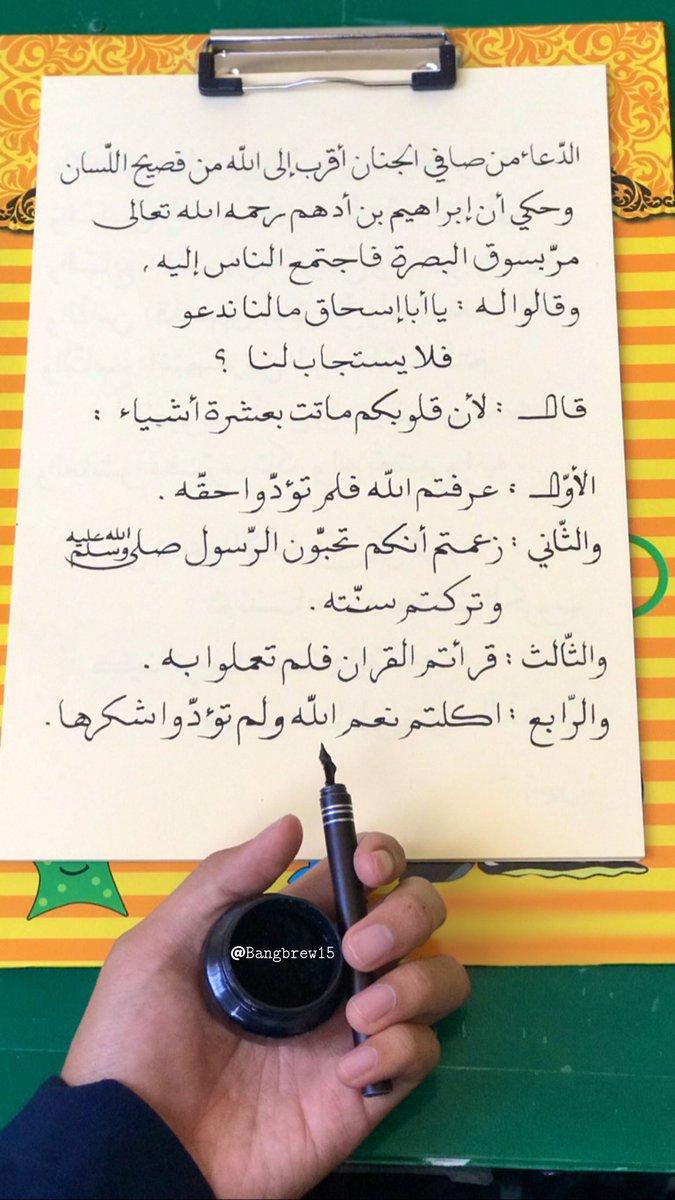 الدّعاء من صافي الجنان أقرب إلى اللّه من فصيح اللّسان
وحكي أن إبراهيم بن أدهم رحمه الله تعالى
مرّ بسوق البصرة فاجتمع الناس إليه ,
وقالوا له : يا أبا إسحاق مالنا ندعو
فلا يستجاب لنا ؟
قال : لأن قلوبكم ماتت بعشرة أشياء :
الأوّل : عرفتم اللّه فلم تؤدّوا حقّه .
والثّاني : زعمتم أنكم تحبّون الرّسول صلى الله عليه وسلم
وتركتم سنّته .
والثّالث : قرأتم القران فلم تعملوا به .
والرّابع : اكلتم نعم اللّه ولم تؤدّوا شكرها .
@Bangbrew15